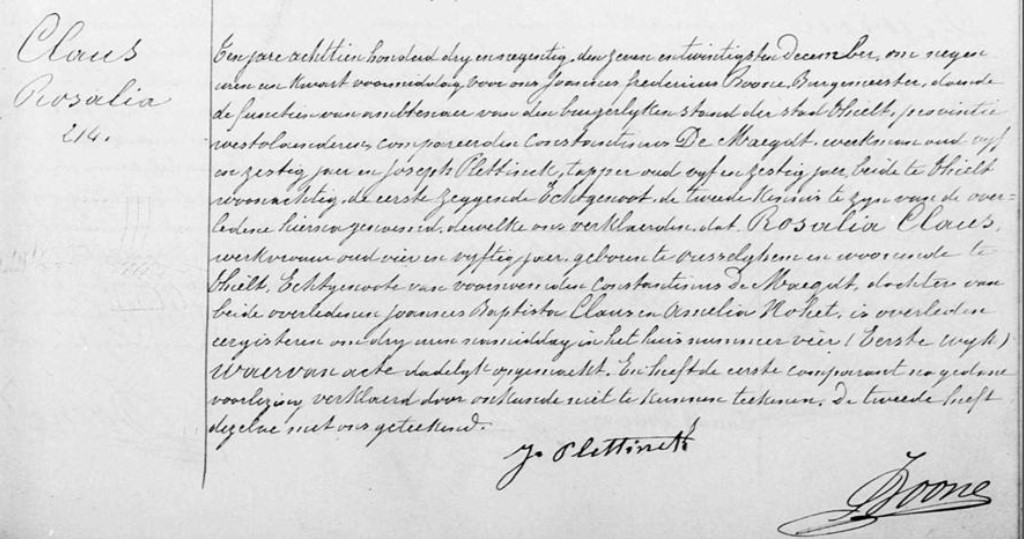 Claus
Rosalia
214.
Ten jare achttien honderd dry en negentig, den zeven en twintigsten December, om negen
uren en kwart voormiddag voor ons Joannes fredericus Boone, Burgmeester, doende
de functien van ambtenaer van den burgerlyken stand der stad Thielt, provintie
westvlaenderen, compareerden Constantinus De Maegdt, werkman oud vyf
en zestig jaer en Joseph Plettinck, tapper oud vyf en zestig jaer, beide te Thielt
woonachtig, de eerste zeggende Echtgenoot, de tweede kennis te zyn van de over-
ledene hierna genoemd, dewelke ons verklaerden, dat Rosalia Claus,
werkvrouw oud vier en vyftig jaer, geboren te ousselghem en woonende te
Thielt, Echtgenoote van voornoemden Constantinus De Maegdt, dochter van
beide overledenen Joannes Baptista Claus en Amelia Hoket, is overleden
eergisteren om dry uren namiddag in het huis nummer vier (Eerste wyk)
Waervan acte dadelyk opgemaekt. En heeft de eerste comparant na gedane
voorlezing verklaerd door onkunde niet te kunnen teekenen. De tweede heeft
dezelve met ons geteekend.
Jo Plettinck
JBoone